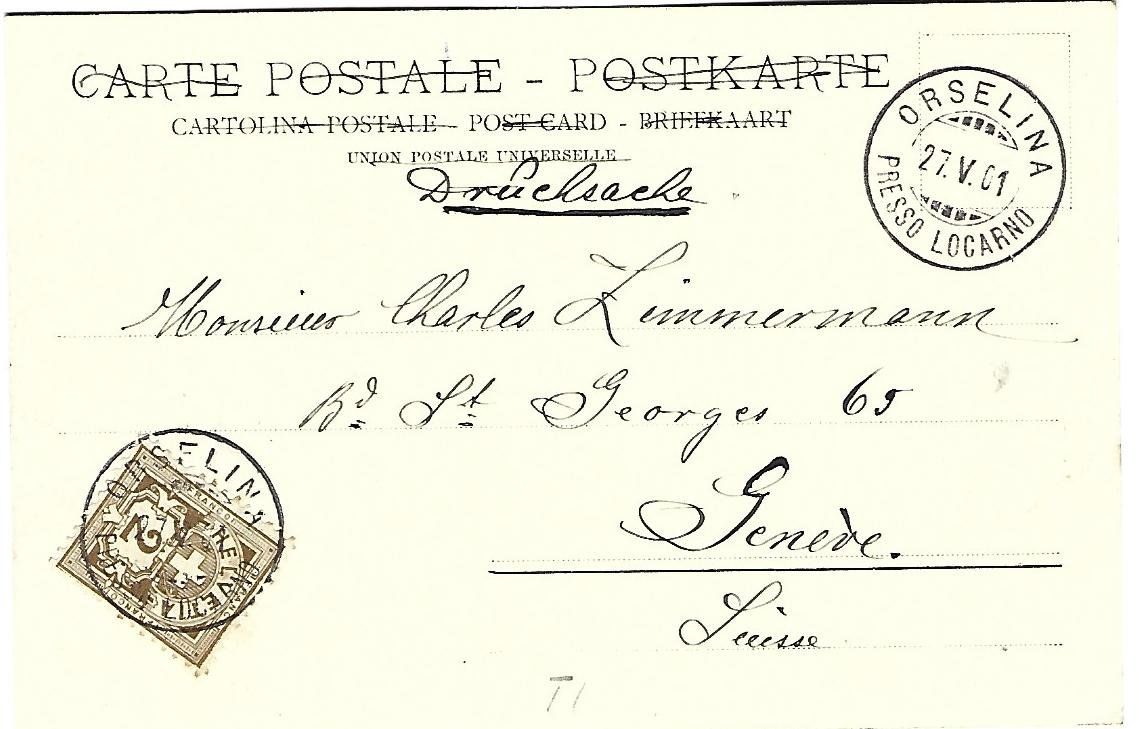 CARTE POSTALE - POSTKARTE
CARTOLINA POSTALE - POST CARD - BRIEFKAART
UNION POSTALE UNIVERSELLE
Drucksache
ORSELINA
27.V.01
PRESSO LOCARNO
Monsieur Charles Zimmermann
Bd St Georges 65
Genève.
Suisse
ORSELINA
FRANCO
HELVETIA
2